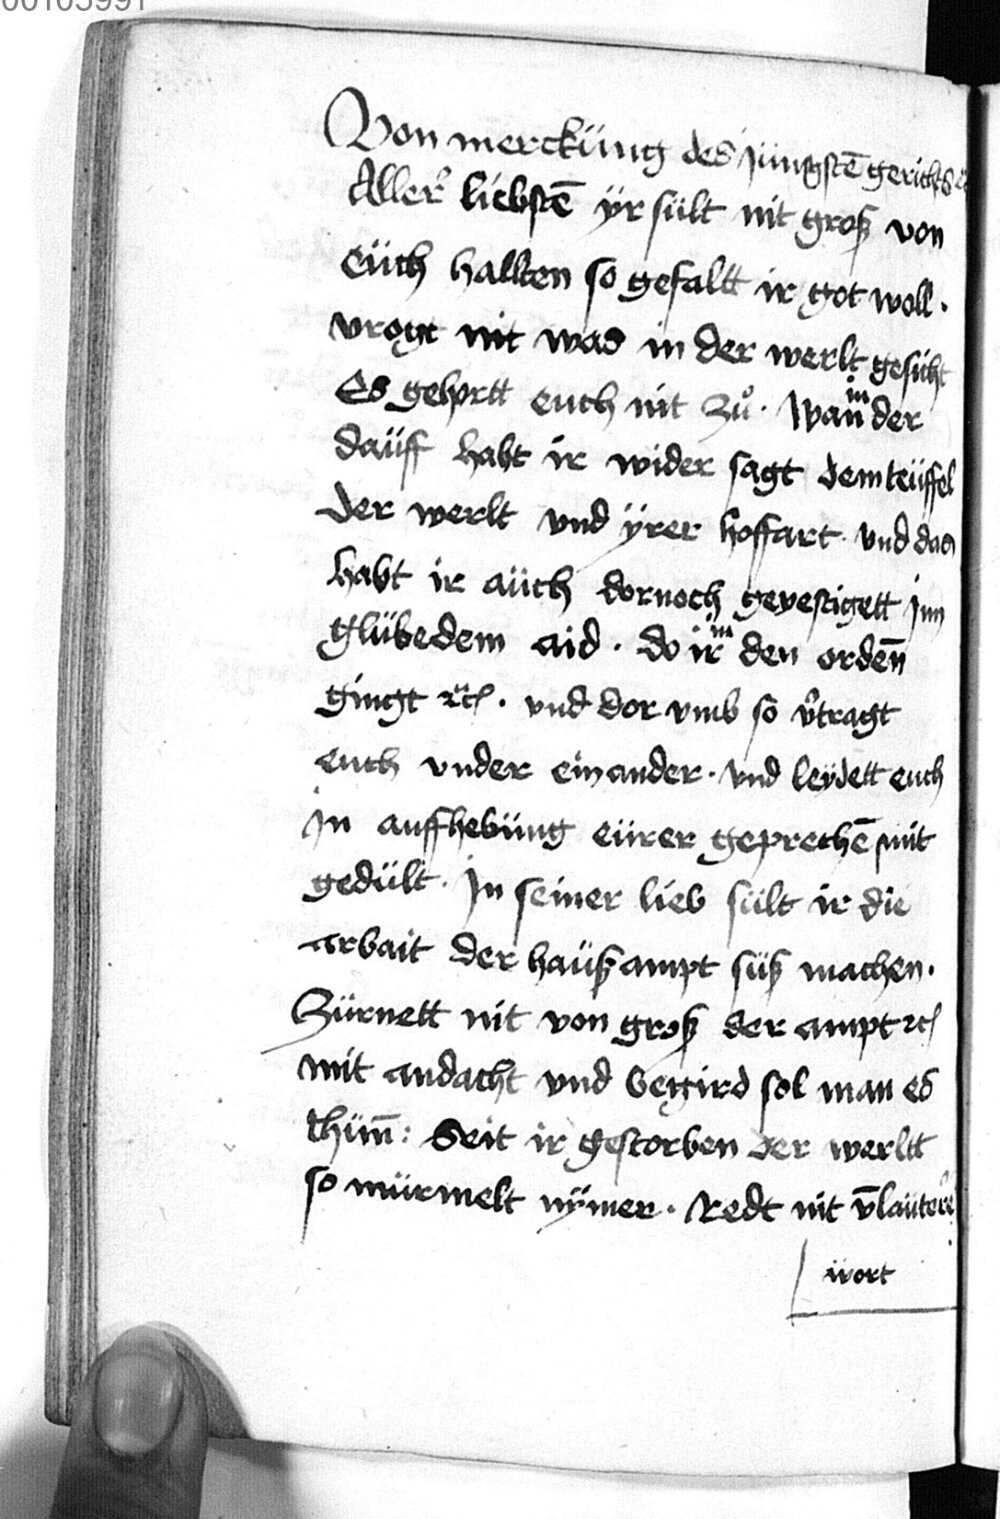 00103991
Von mercküng des jüngstē gerichts ꝛc
Aller liebstē ÿr sült nit groß von
eüch hallten so gefaltt ir got woll .
vrogt nit was in der werlt gesicht
Es gehortt euch nit zuͦ . Wan in der
dauff habt ir wider sagt dem teüffel
der werlt vnd ÿrer hoffart . vnd das
habt ir aüch dornoch gevestigett jm
glübe dem aid . do ir in den ordēn
gingt ꝛc . vnd dor vmb so v̄tragt
euch vnder ein ander . vnd leÿdett euch
jn auffhebüng eürer geprechē mit
gedült . Jn seiner lieb sült ir die
arbait der haüß ampt süß machen .
Zürnett nit von groß der ampt ꝛc
mit andacht vnd begird sol man es
thün̄ : Seit ir gestorben der werltt
so mürmelt nÿmer . Redt nit v̄laütere
wort